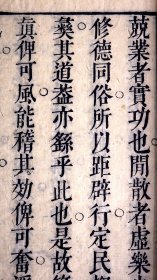 兢業者實功也閒散者虛樂
修德同俗所以距辟行定民
彜其道蓋亦繇乎此也是故
真俾可風能稽其効俾可奮